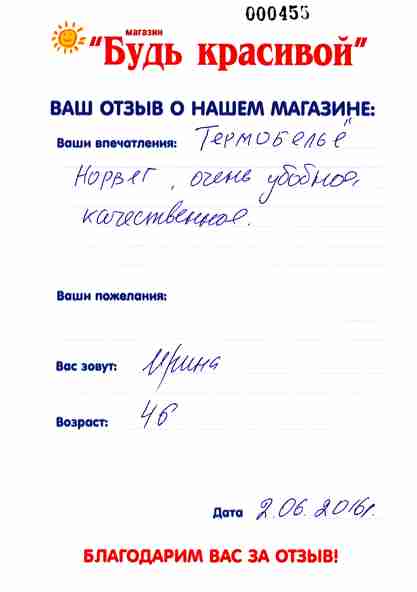 000455
магазин
"Будь красивой"
ВАШ ОТЗЫВ О НАШЕМ МАГАЗИНЕ:
Ваши впечатления: Термобельё"
Норвег, очень удобное,
качественное.
Ваши пожелания:
Вас зовут: Ирина
Возраст: 46
Дата 2.06.2016г.
БЛАГОДАРИМ ВАС ЗА ОТЗЫВ!